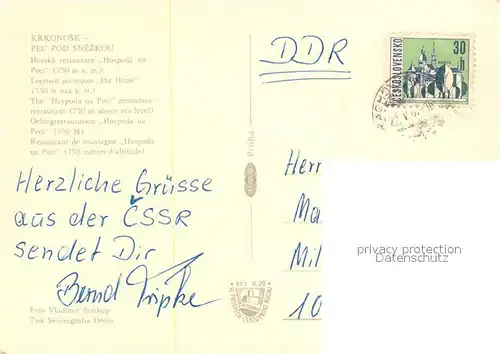 KRKONOŠE –
PEC POD SNĚŽKOU
Horská restaurace „Hospoda na
Peci" (750 m n. m.)
Горный ресторан „На Пеци"
(750 м над у. м.)
The "Hospoda na Peci" mountain
restaurant (750 m above sea-level)
Gebirgsrestauration „Hospoda na
Peci" (750 M)
Restaurant de montagne "Hospoda
na Peci" (750 mètres d'altitude)
Herzliche Grüsse
aus der ČSSR
sendet Dir
Bernd Pripke
Foto Vladimír Soukup
Tisk Severografia Děčín
Praha
DDR
ČESKOSLOVENSKO
30
h
Herr
Ma
Mil
10
privacy protection
Datenschutz
Kčs 0,20